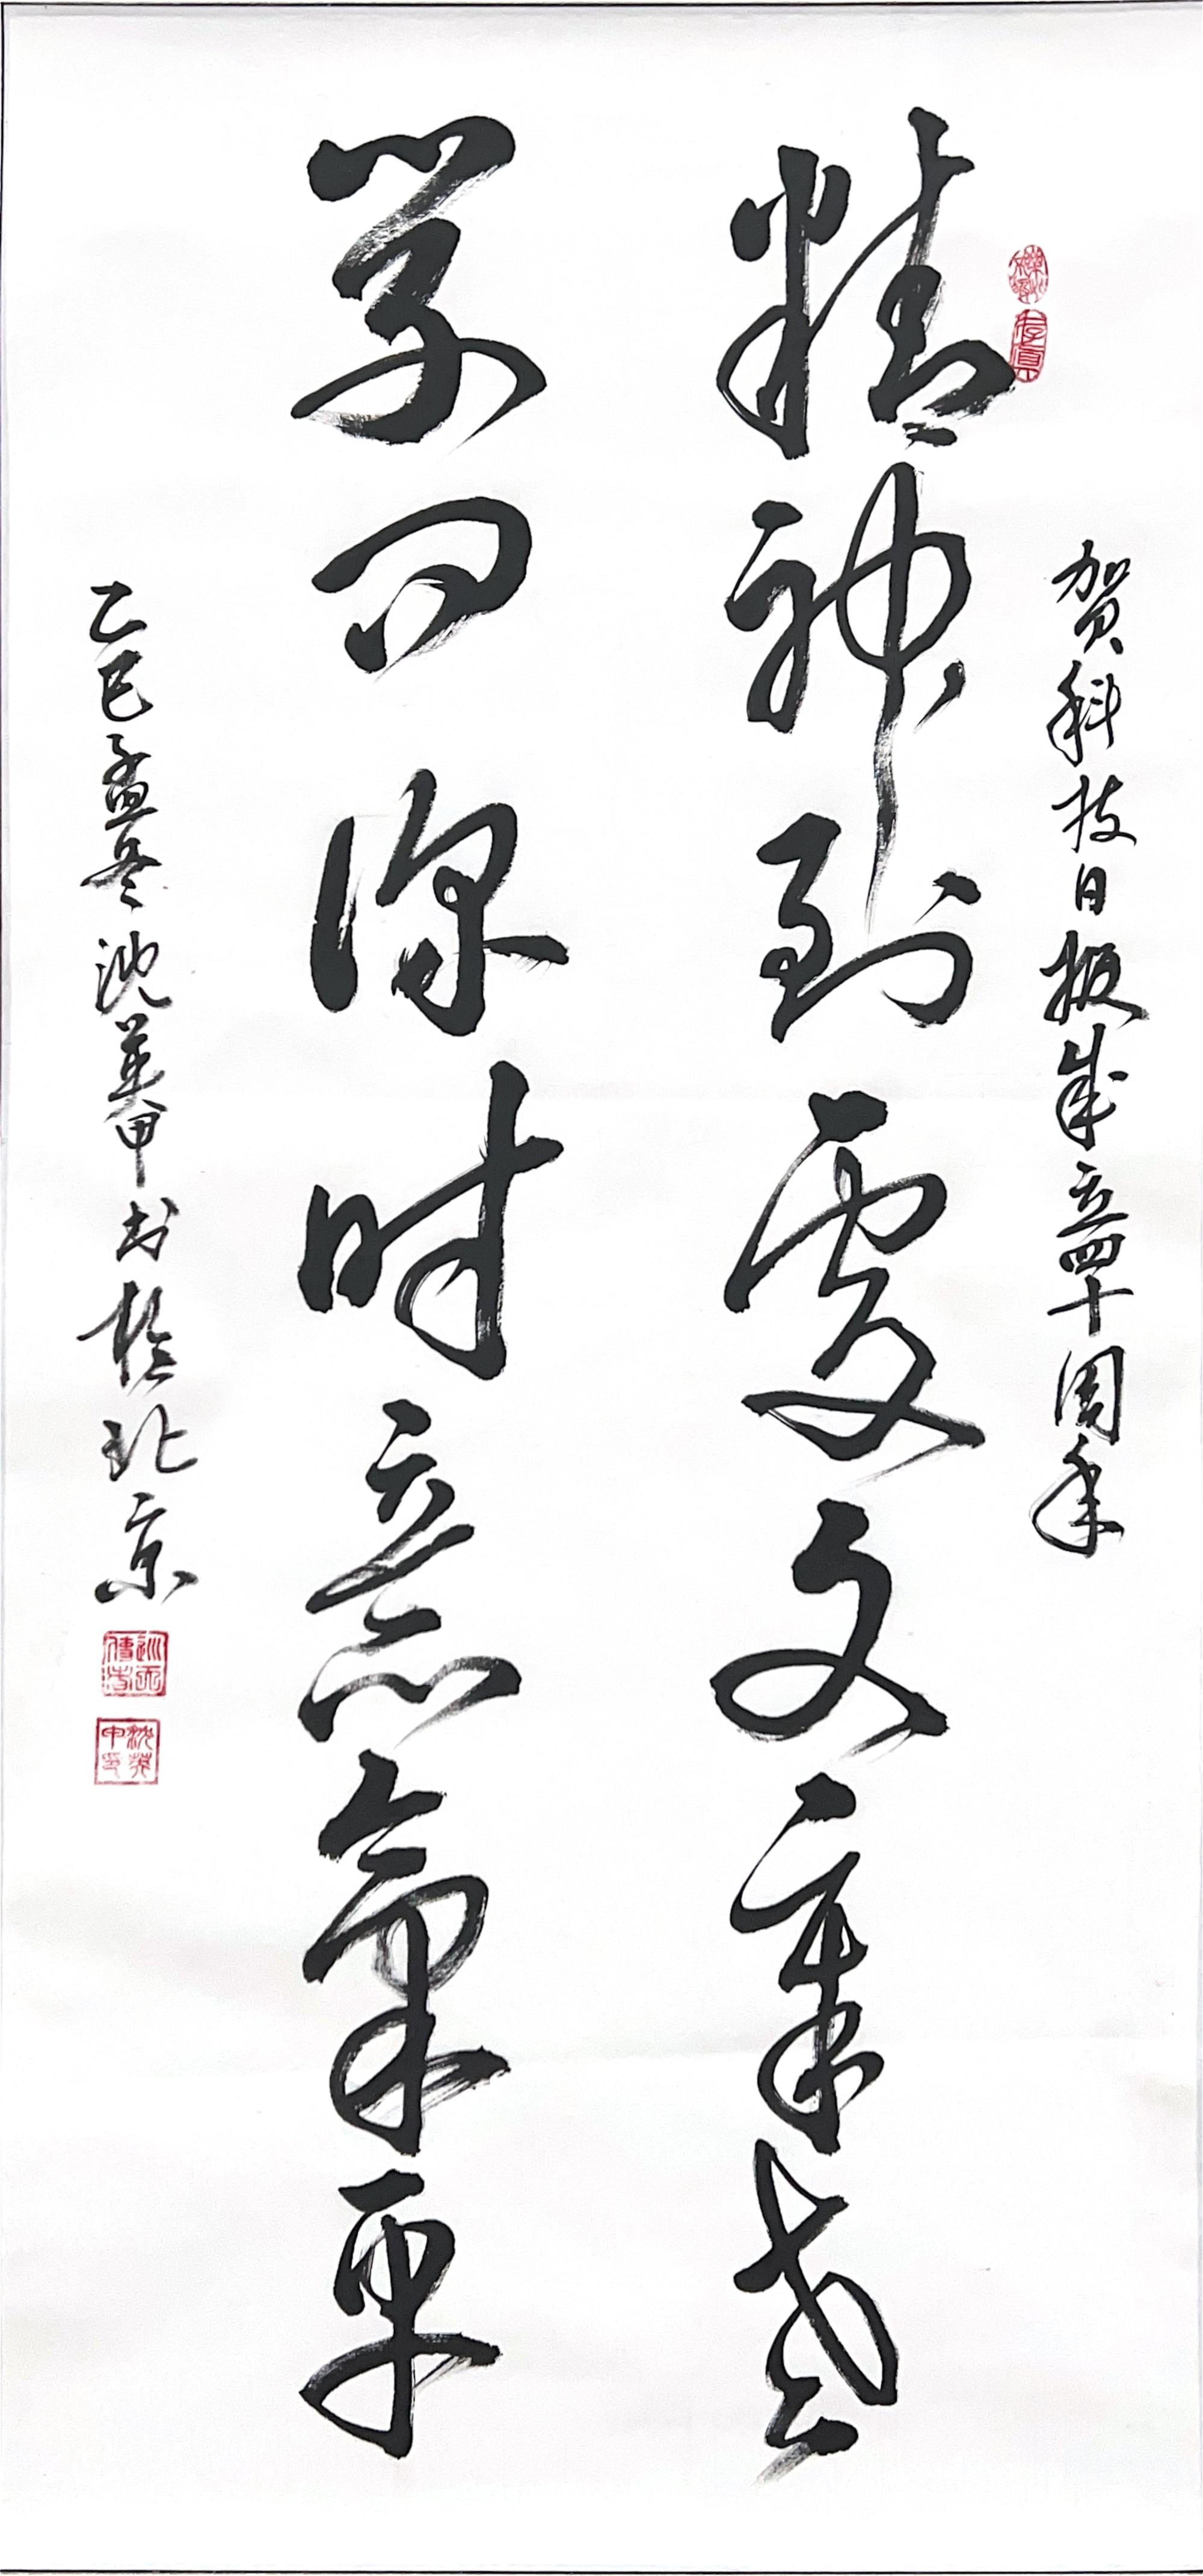 贺科技日报成立四十周年
精神到处文章老
学问深时意气平
乙巳孟冬沈英甲书于北京